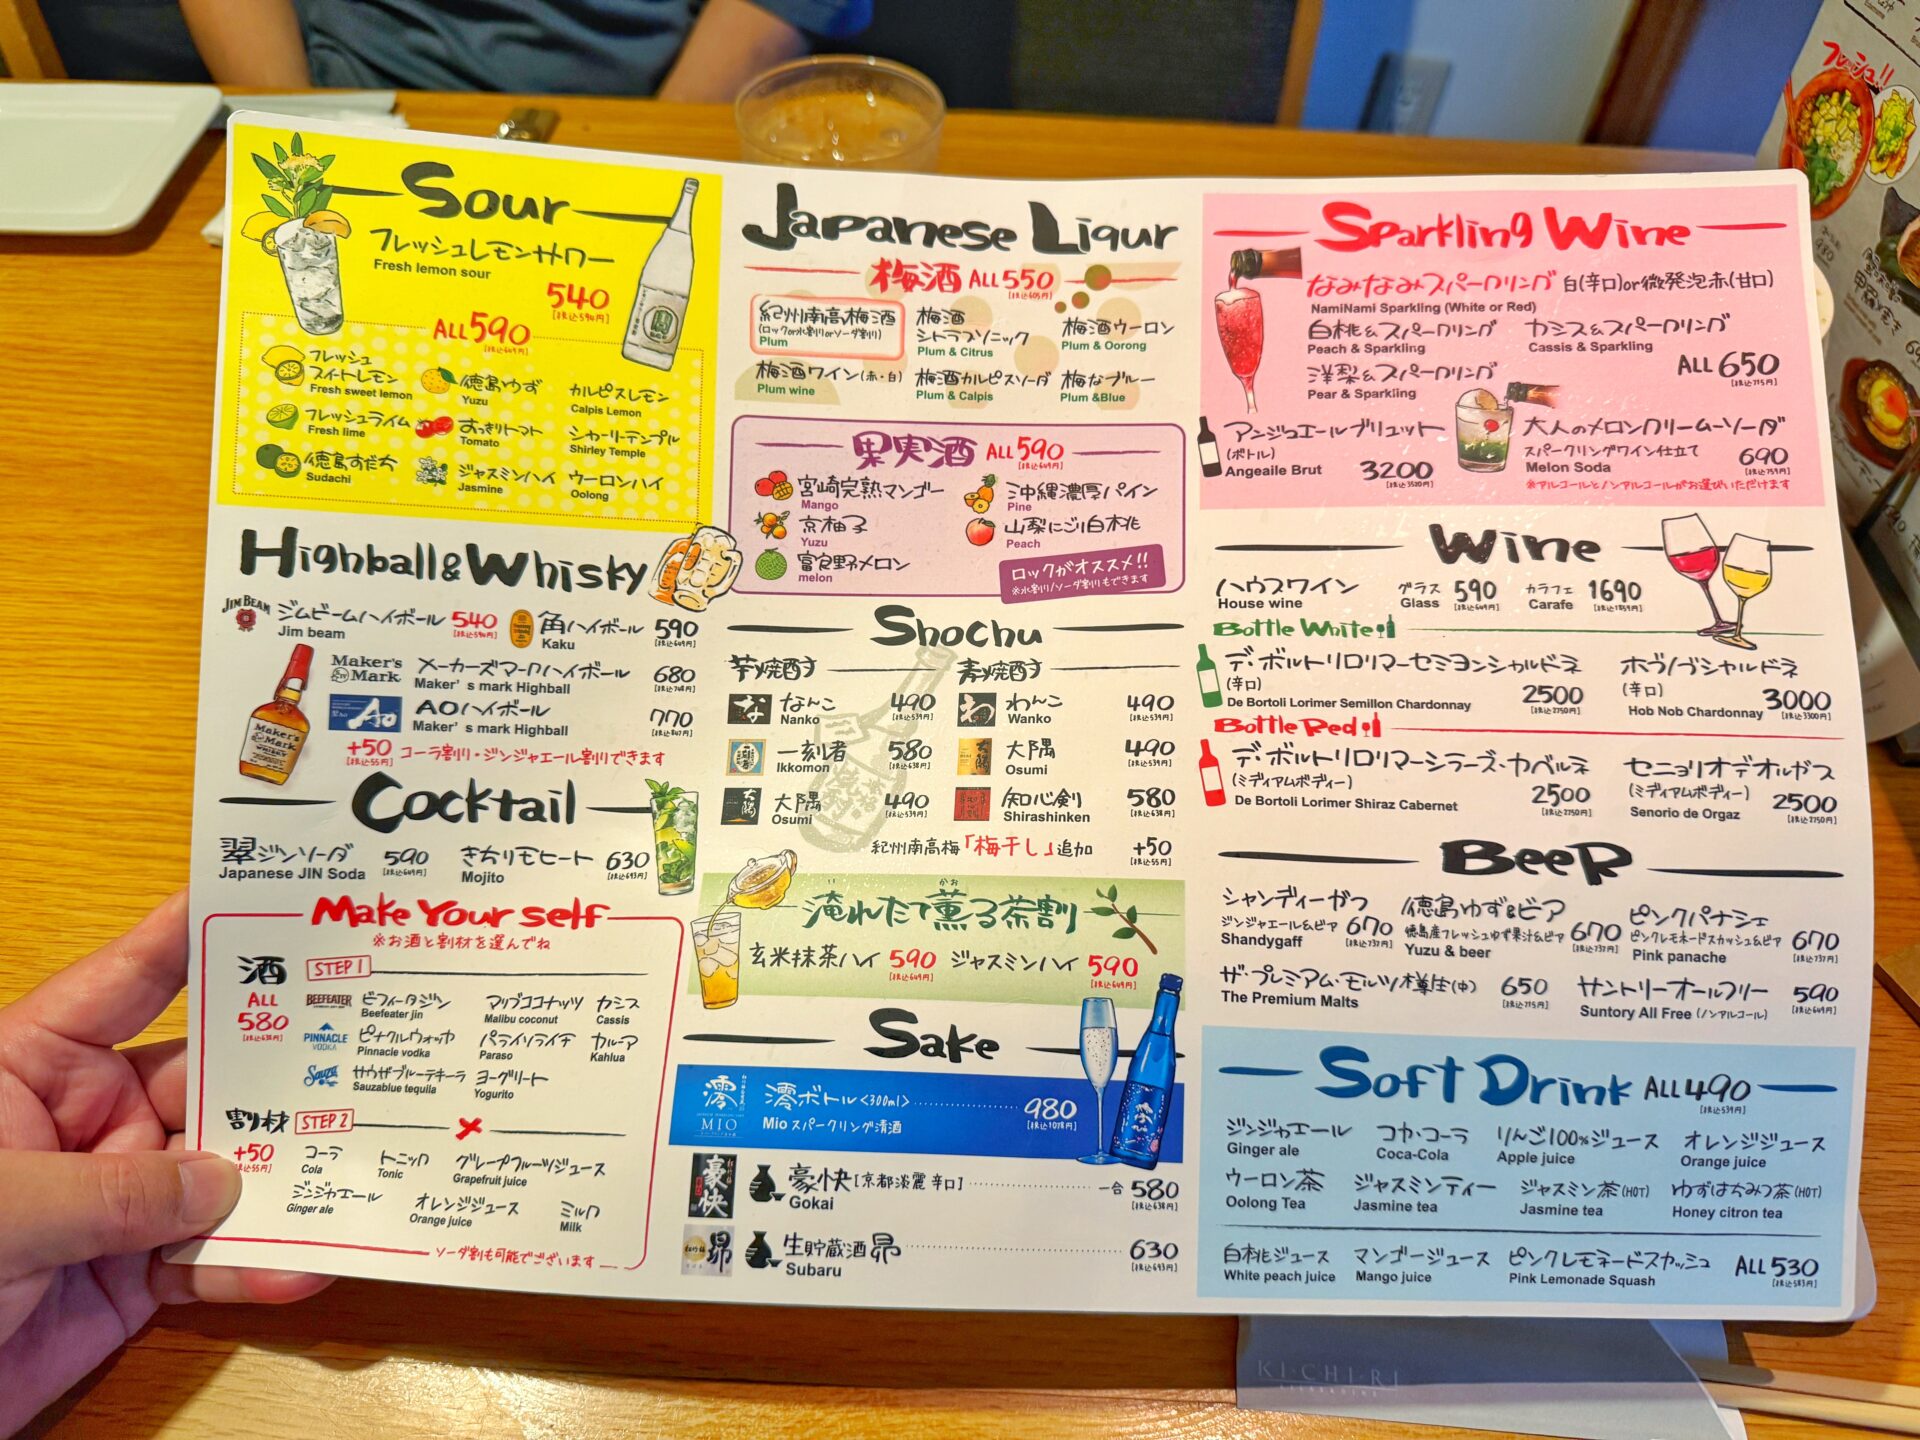 Sour
フレッシュレモンサワー
Fresh lemon sour
540
[税込594円]
ALL 590
[税込649円]
フレッシュ
スイートレモン
Fresh sweet lemon
徳島ゆず
Yuzu
カルピスレモン
Calpis Lemon
フレッシュライム
Fresh lime
すっきりトマト
Tomato
シャーリーテンプル
Shirley Temple
徳島すだち
Sudachi
ジャスミンハイ
Jasmine
ウーロンハイ
Oolong
Highball & Whisky
JIM BEAM
ジムビームハイボール 540
Jim beam
[税込594円]
角ハイボール 590
Kaku
[税込649円]
Maker's Mark
メーカーズマークハイボール 680
Maker's mark Highball
[税込748円]
Ao
AOハイボール 770
Maker's mark Highball
[税込847円]
+50 コーラ割り・ジンジャエール割りできます
[税込55円]
Cocktail
翠ジンソーダ 590
Japanese JIN Soda
[税込649円]
きっちりモヒート 630
Mojito
[税込693円]
Make Your self
※お酒と割材を選んでね
酒 STEP 1
ALL
580
[税込638円]
BEEFEATER
ビフィータジン
Beefeater jin
マリブココナッツ
Malibu coconut
カシス
Cassis
PINNACLE VODKA
ピナクルウォッカ
Pinnacle vodka
パライソライチ
Paraso
カルーア
Kahlua
Sauza
サウザブルーテキーラ
Sauzablue tequila
ヨーグリート
Yogurito
割り材 STEP 2
+50
[税込55円]
コーラ
Cola
トニック
Tonic
グレープフルーツジュース
Grapefruit juice
ジンジャエール
Ginger ale
オレンジジュース
Orange juice
ミルク
Milk
ソーダ割も可能でございます
Japanese Liqur
梅酒 ALL 550
[税込605円]
紀州南高梅酒
(ロックor水割りorソーダ割り)
Plum
梅酒
シトラスソニック
Plum & Citrus
梅酒ウーロン
Plum & Oorong
梅酒ワイン(赤・白)
Plum wine
梅酒カルピスソーダ
Plum & Calpis
梅なブルー
Plum &Blue
果実酒 ALL 590
[税込649円]
宮崎完熟マンゴー
Mango
沖縄濃厚パイン
Pine
京柚子
Yuzu
山梨にごり白桃
Peach
富良野メロン
melon
ロックがオススメ!!
※水割り/ソーダ割りもできます
Shochu
芋焼酎
麦焼酎
なんこ 490
Nanko
[税込539円]
わんこ 490
Wanko
[税込539円]
一刻者 580
Ikkomon
[税込638円]
大隅 490
Osumi
[税込539円]
大隅 490
Osumi
[税込539円]
知心剣 580
Shirashinken
[税込638円]
紀州南高梅「梅干し」追加 +50
[税込55円]
淹れたて薫る茶割
玄米抹茶ハイ 590
[税込649円]
ジャスミンハイ 590
[税込649円]
Sake
澪
MIO
澪ボトル<300ml> 980
Mio スパークリング清酒
[税込1078円]
豪快
豪快[京都淡麗辛口] 一合 580
Gokai
[税込638円]
昴
生貯蔵酒昴 630
Subaru
[税込693円]
Sparkling Wine
なみなみスパークリング 白(辛口)or微発泡赤(甘口)
NamiNami Sparkling (White or Red)
白桃&スパークリング
Peach & Sparkling
カシス&スパークリング
Cassis & Sparkling
洋梨&スパークリング
Pear & Sparkling
ALL 650
[税込715円]
アンジュエールブリュット
(ボトル)
Angeaile Brut
3200
[税込3520円]
大人のメロンクリームソーダ
スパークリングワイン仕立て
Melon Soda
690
[税込759円]
※アルコールとノンアルコールがお選びいただけます
Wine
ハウスワイン
House wine
グラス 590
Glass
[税込649円]
カラフェ 1690
Carafe
[税込1859円]
Bottle White
デ・ボルトリロリマーセミヨンシャルドネ
(辛口)
De Bortoli Lorimer Semillon Chardonnay
2500
[税込2750円]
ホブノブシャルドネ
(辛口)
Hob Nob Chardonnay
3000
[税込3300円]
Bottle Red
デ・ボルトリロリマーシラーズ・カベルネ
(ミディアムボディー)
De Bortoli Lorimer Shiraz Cabernet
2500
[税込2750円]
セニョリオデオルガス
(ミディアムボディー)
Senorio de Orgaz
2500
[税込2750円]
Beer
シャンディーガフ
ジンジャエール&ビア
Shandygaff
670
[税込737円]
徳島ゆず&ビア
徳島産フレッシュゆず果汁&ビア
Yuzu & beer
670
[税込737円]
ピンクパナシェ
ピンクレモネードスカッシュ&ビア
Pink panache
670
[税込737円]
ザ・プレミアム・モルツ樽生(中) 650
The Premium Malts
[税込715円]
サントリーオールフリー 590
Suntory All Free (ノンアルコール)
[税込649円]
Soft Drink ALL 490
[税込539円]
ジンジャエール
Ginger ale
コカ・コーラ
Coca-Cola
りんご100%ジュース
Apple juice
オレンジジュース
Orange juice
ウーロン茶
Oolong Tea
ジャスミンティー
Jasmine tea
ジャスミン茶(HOT)
Jasmine tea
ゆずはちみつ茶(HOT)
Honey citron tea
白桃ジュース
White peach juice
マンゴージュース
Mango juice
ピンクレモネードスカッシュ
Pink Lemonade Squash
ALL 530
[税込583円]
フレッシュ!!
KICHIRI